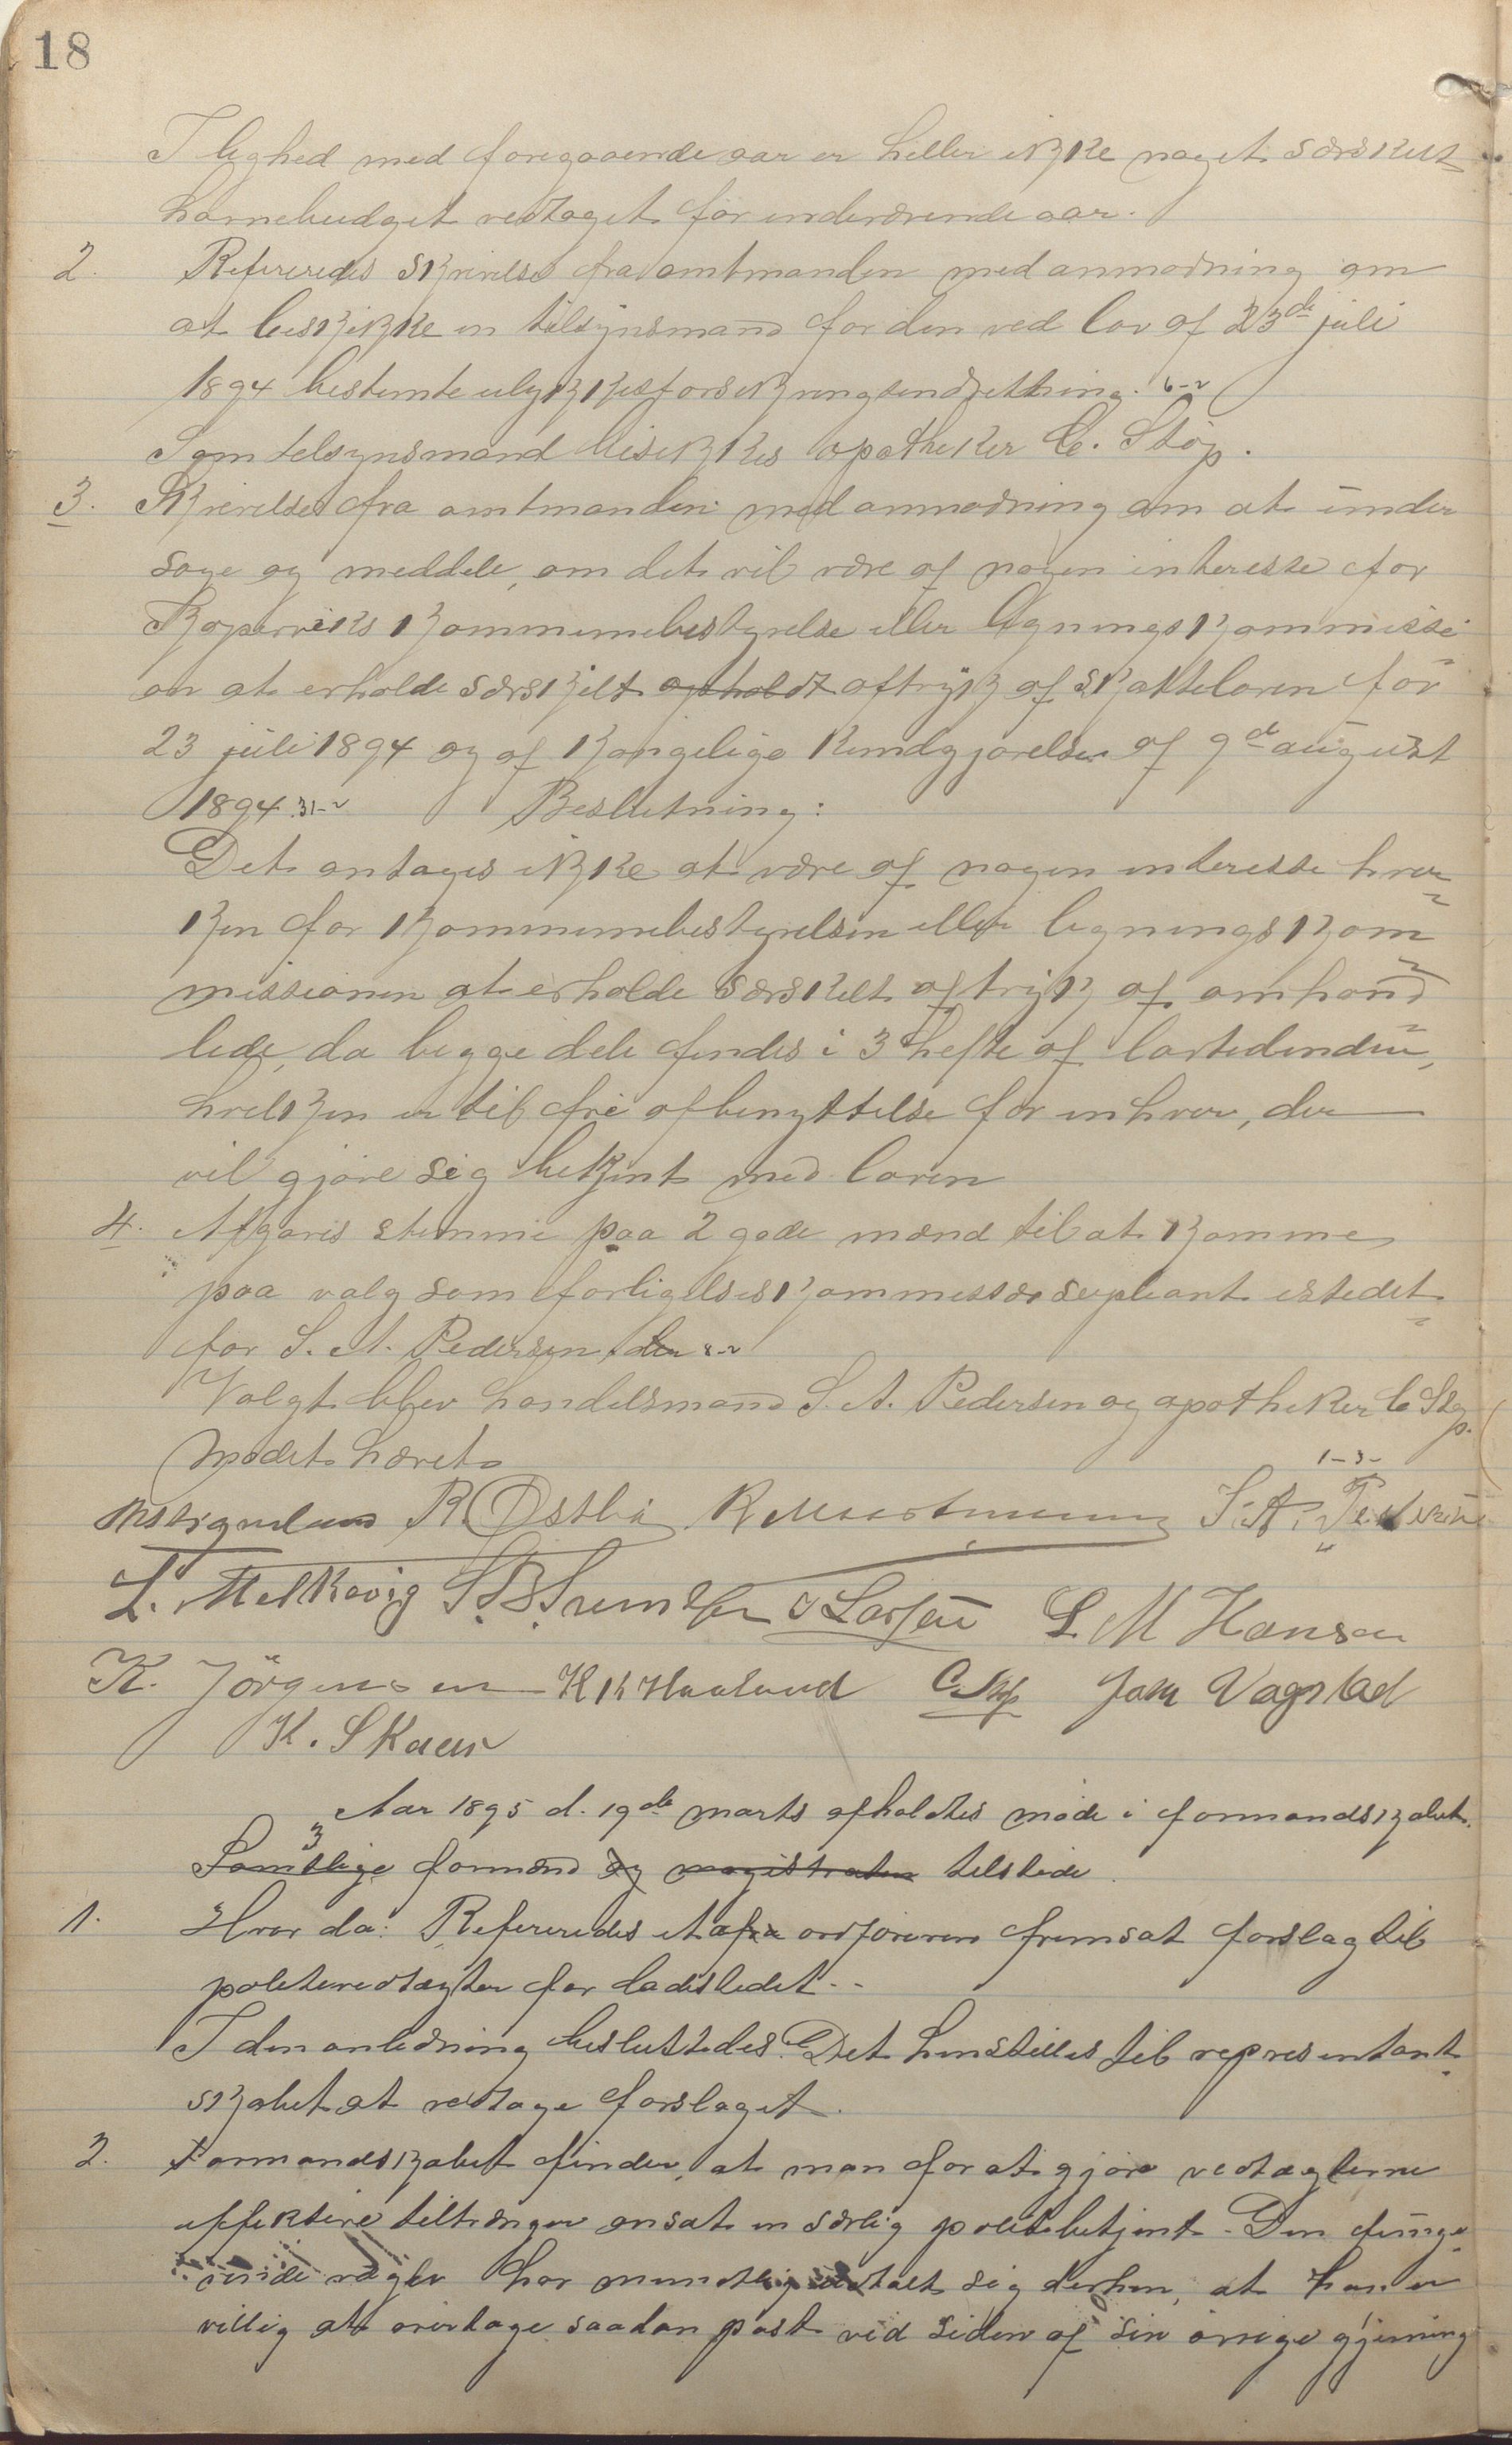 18
I lighed med foregaaende aar er heller ikke noget særskelt
havnebudget vedtaget for inderværende aar.
2. Refereredes skrivelse fra amtmanden med anmodning om
at beskikke en tilsynsmand for den ved lov af 23de juli
1894 bestemte ulykkesforsikringsindretning. 6-2
Som telsynsmand beskikkes apotheker C. Støp.
3. Skrivelse fra amtmanden med anmodning om at under
søge og meddele, om det vil være af nogen interesse for
Kopervיks kommunebestyrelse eller ligningskommissi
on at erholde særskjelt opholdt aftryk af skatteloven for
23 juli 1894 og af kongelige kundgjørelse af 9de august
1894 31-2 Beslutning:
Det antages ikke at være af nogen interesse hver
ken for kommunebestyrelsen eller ligningskom
missionen at erholde særskelt aftryk af omhand
lede, da begge dele findes i 3 hefte af lovtidenden,
hvelken er til fri afbenyttelse for enhver, der
vil gjøre sig bekjent med loven
4. Afgaves stemme paa 2 gode mænd til at komme
paa valg som forligelseskommissærsupleant istedet
for S. A. Pedersen den 8-2
Valgt blev handelsmand S. A. Pedersen og apotheker C Støp.
Mødet hævet
1-3-
R. Østbø S. A. Pedersen
L. Melkevig Larsen L. M Hansen
K. Jörgensen K K Haaland C. Støp John Vagstad
K. Skaar
Aar 1895 d. 19de marts afholdtes møde i formandskabet.
3
Samtlige formænd og magistraten tilstede.
1. Hvor da: Refereredes et af fra ordføreren fremsat forslag til
politivedtægter for ladestedet.-
I den anledning besluttedes: Det henstilles til representant
skabet at vedtage forslaget.
2. Formandskabet finder, at man for at gjøre vedtægterne
effektive tiltrænger ansat en særlig politibetjent. Den funge
rende vægter har mundtlig udtalt sig derhen, at han er
villig at overtage saadan post ved siden af sin øvrige gjerning